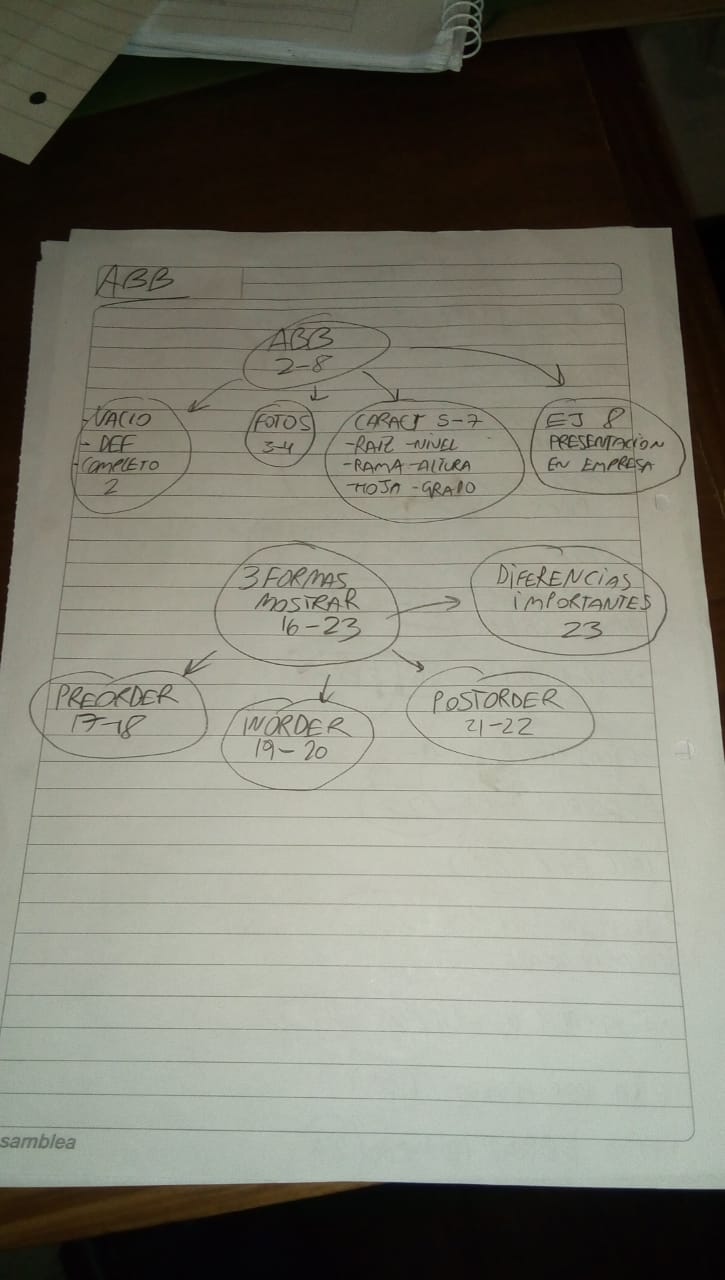 ABB
ABB
2-8
-VACIO
- DEF
-COMPLETO
2
FOTOS
3-4
CARACT 5-7
-RAIZ -NIVEL
-RAMA -ALTURA
-HOJA -GRADO
EJ 8
PRESENTACION
EN EMPRESA
3 FORMAS
MOSTRAR
16-23
DIFERENCIAS
IMPORTANTES
23
PREORDER
17-18
INORDER
19-20
POSTORDER
21-22
samblea